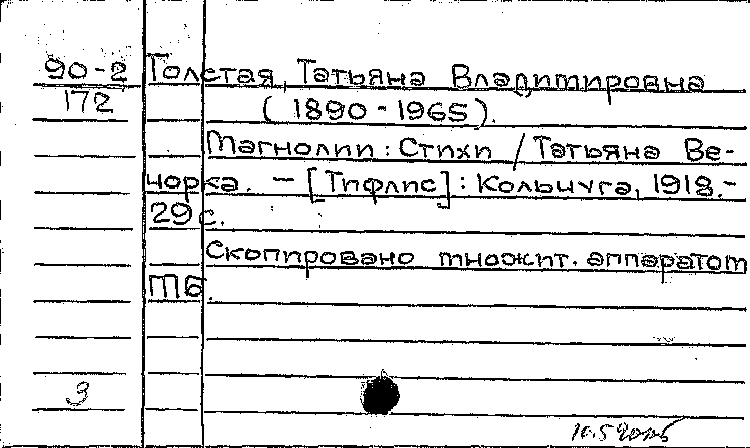 90-2 Толстая, Татьяна Владимировна
172 (1890-1965).
Магнолии: Стихи / Татьяна Ве-
чорка. - [Тифлис]: Кольчуга, 1918.-
29 с.
Скопировано множит. аппаратом
ГПБ.
3